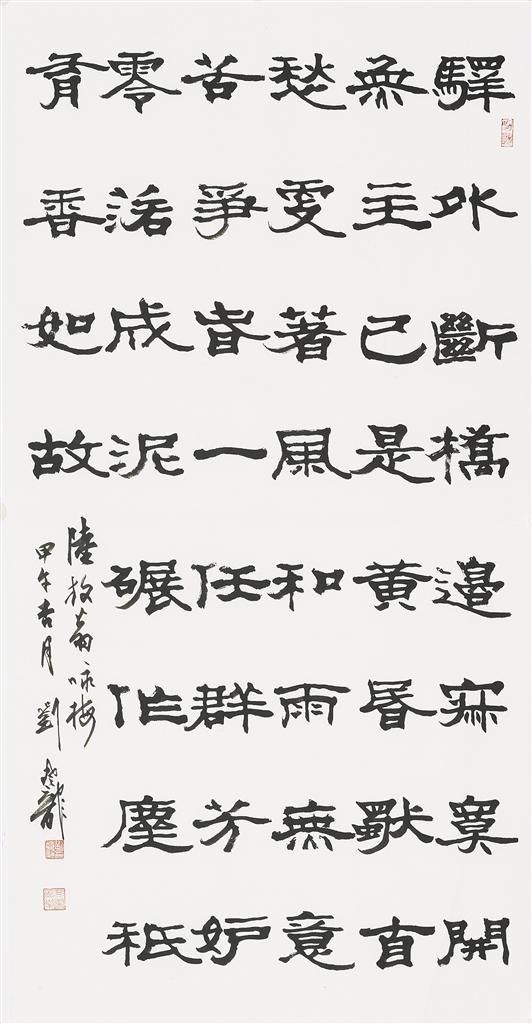 驛外斷橋邊寂寞開
無主已是黃昏獨自
愁更著風和雨無意
苦爭春一任群芳妒
零落成泥碾作塵秖
有香如故
陸放翁咏梅
甲午 月 劉 龍